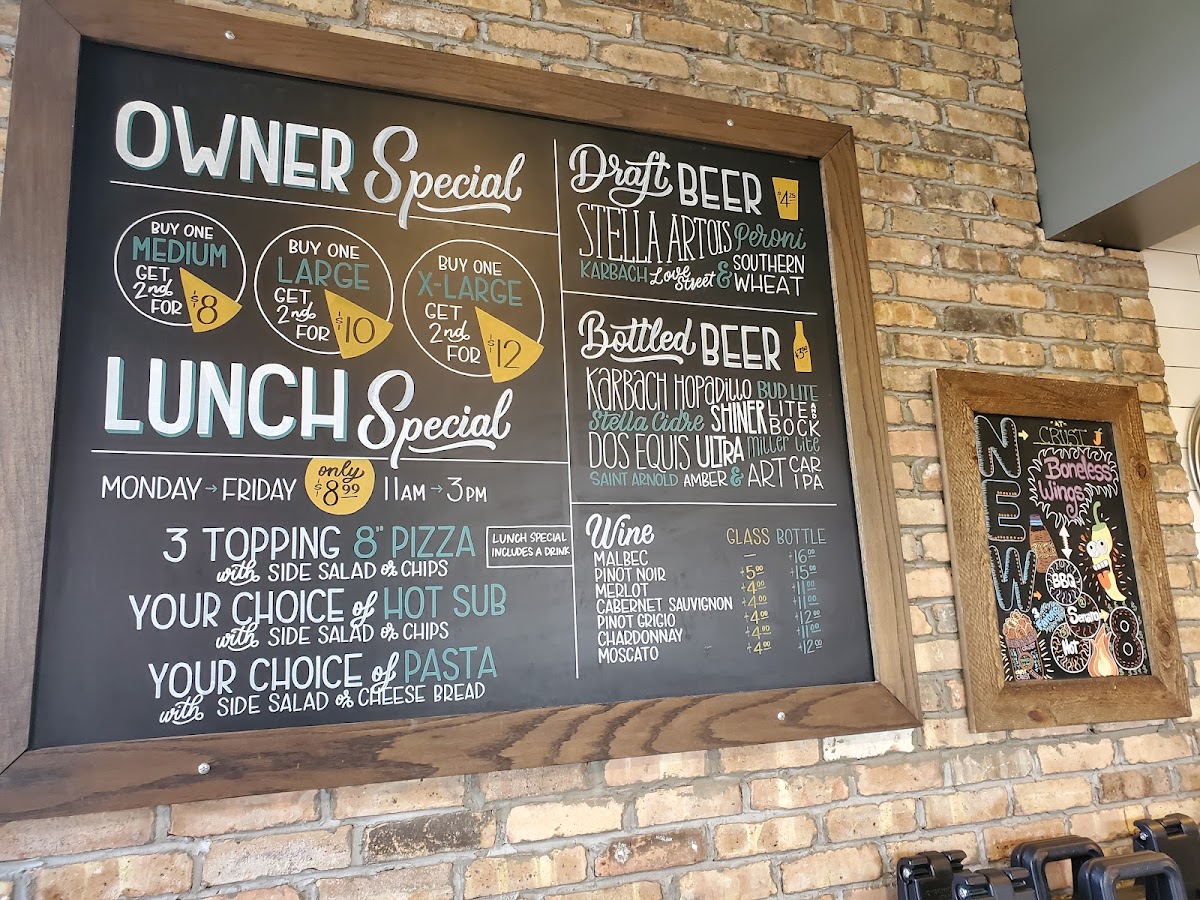 OWNER Special
BUY ONE
MEDIUM
GET
2nd
FOR
$8
BUY ONE
LARGE
GET
2nd
FOR
$10
BUY ONE
X-LARGE
GET
2nd
FOR
$12
LUNCH Special
MONDAY → FRIDAY only $8.99 11AM → 3PM
3 TOPPING 8" PIZZA
with SIDE SALAD or CHIPS
LUNCH SPECIAL
INCLUDES A DRINK
YOUR CHOICE of HOT SUB
with SIDE SALAD or CHIPS
YOUR CHOICE of PASTA
with SIDE SALAD or CHEESE BREAD
Draft BEER $4.25
STELLA ARTOIS Peroni
KARBACH Love Street & SOUTHERN WHEAT
Bottled BEER
KARBACH HOPADILLO BUD LITE
Stella Cidre SHINER LITE AND BOCK
DOS EQUIS ULTRA Miller Lite
SAINT ARNOLD AMBER & ART CAR IPA
Wine GLASS BOTTLE
MALBEC — $16.00
PINOT NOIR $5.00 $15.00
MERLOT $4.00 $11.00
CABERNET SAUVIGNON $4.00 $11.00
PINOT GRIGIO $4.00 $12.00
CHARDONNAY $4.00 $11.00
MOSCATO $4.00 $12.00
NEW
AT
CRUST
Boneless
Wings
BBQ
HOT
8